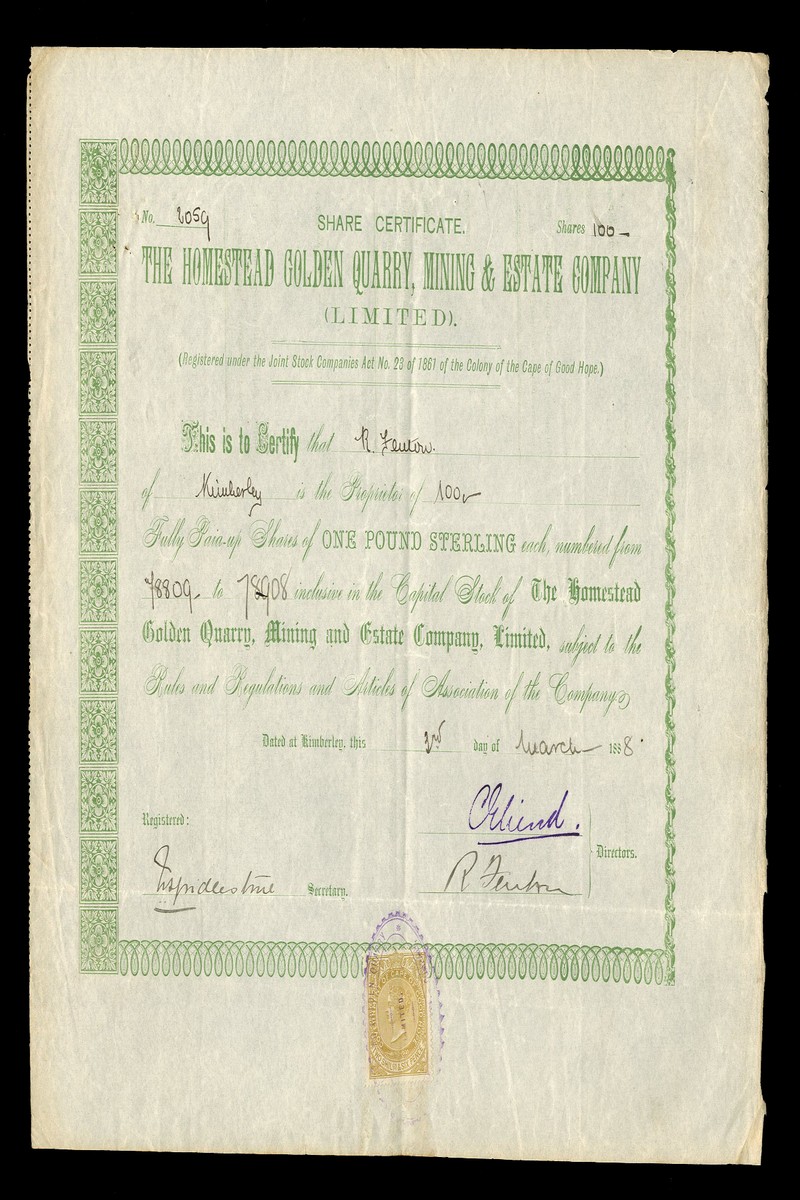 No. 2059
SHARE CERTIFICATE.
Shares 100 –
THE HOMESTEAD GOLDEN QUARRY, MINING & ESTATE COMPANY
(LIMITED).
(Registered under the Joint Stock Companies Act No. 23 of 1861 of the Colony of the Cape of Good Hope.)
This is to Certify that R. Fenton.
of Kimberley is the Proprietor of 100
Fully Paid-up Shares of ONE POUND STERLING each, numbered from
78809 to 78908 inclusive in the Capital Stock of The Homestead
Golden Quarry, Mining and Estate Company, Limited, subject to the
Rules and Regulations and Articles of Association of the Company
Dated at Kimberley, this 3rd day of March 1888.
Registered:
Secretary.
R Fenton
Directors.